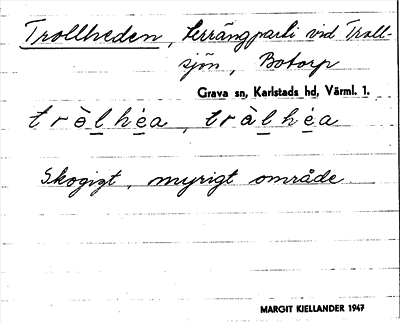 Trollheden, terrängparti vid Troll-
sjön, Botorp
Grava sn, Karlstads hd, Värml. 1.
tròlhėa, tràlhėa
Skogigt, myrigt område
MARGIT KIELLANDER 1947